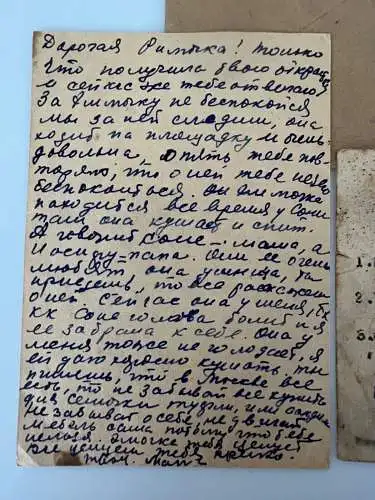 Дорогая Римыка! только
что получила твою открытку
и сейчас же тебе отвечаю.
За Эммочку не беспокойся
мы за ней следим, она
ходит на площадку и очень
довольна, опять тебе пов-
торяю, что о ней тебе нечего
беспокоиться. Он
находится все время у Сони
там она кушает и спит.
А говорит Соне - мама, а
Иосифу - папа. Они ее очень
любят она умница, ты
приедешь, то все расскажем
о ней сейчас она у меня,
Соне голова болит и я
ее забрала к себе. Она у
меня тоже не голодает, я
ей даю хорошо кушать, ты
пишешь, что в Москве все
есть, то не забывай все купить
для Семочки туфли, или сандали
не забывай о себе, не двигай
мебель сама потому что тебе
нельзя. Эмочка тебя целует
все целуем тебя крепко.
твоя мама
1.
2.
3.